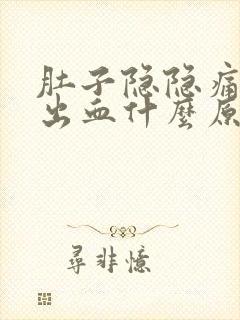 肚子隐隐痛
出血什麼原
尋非憶